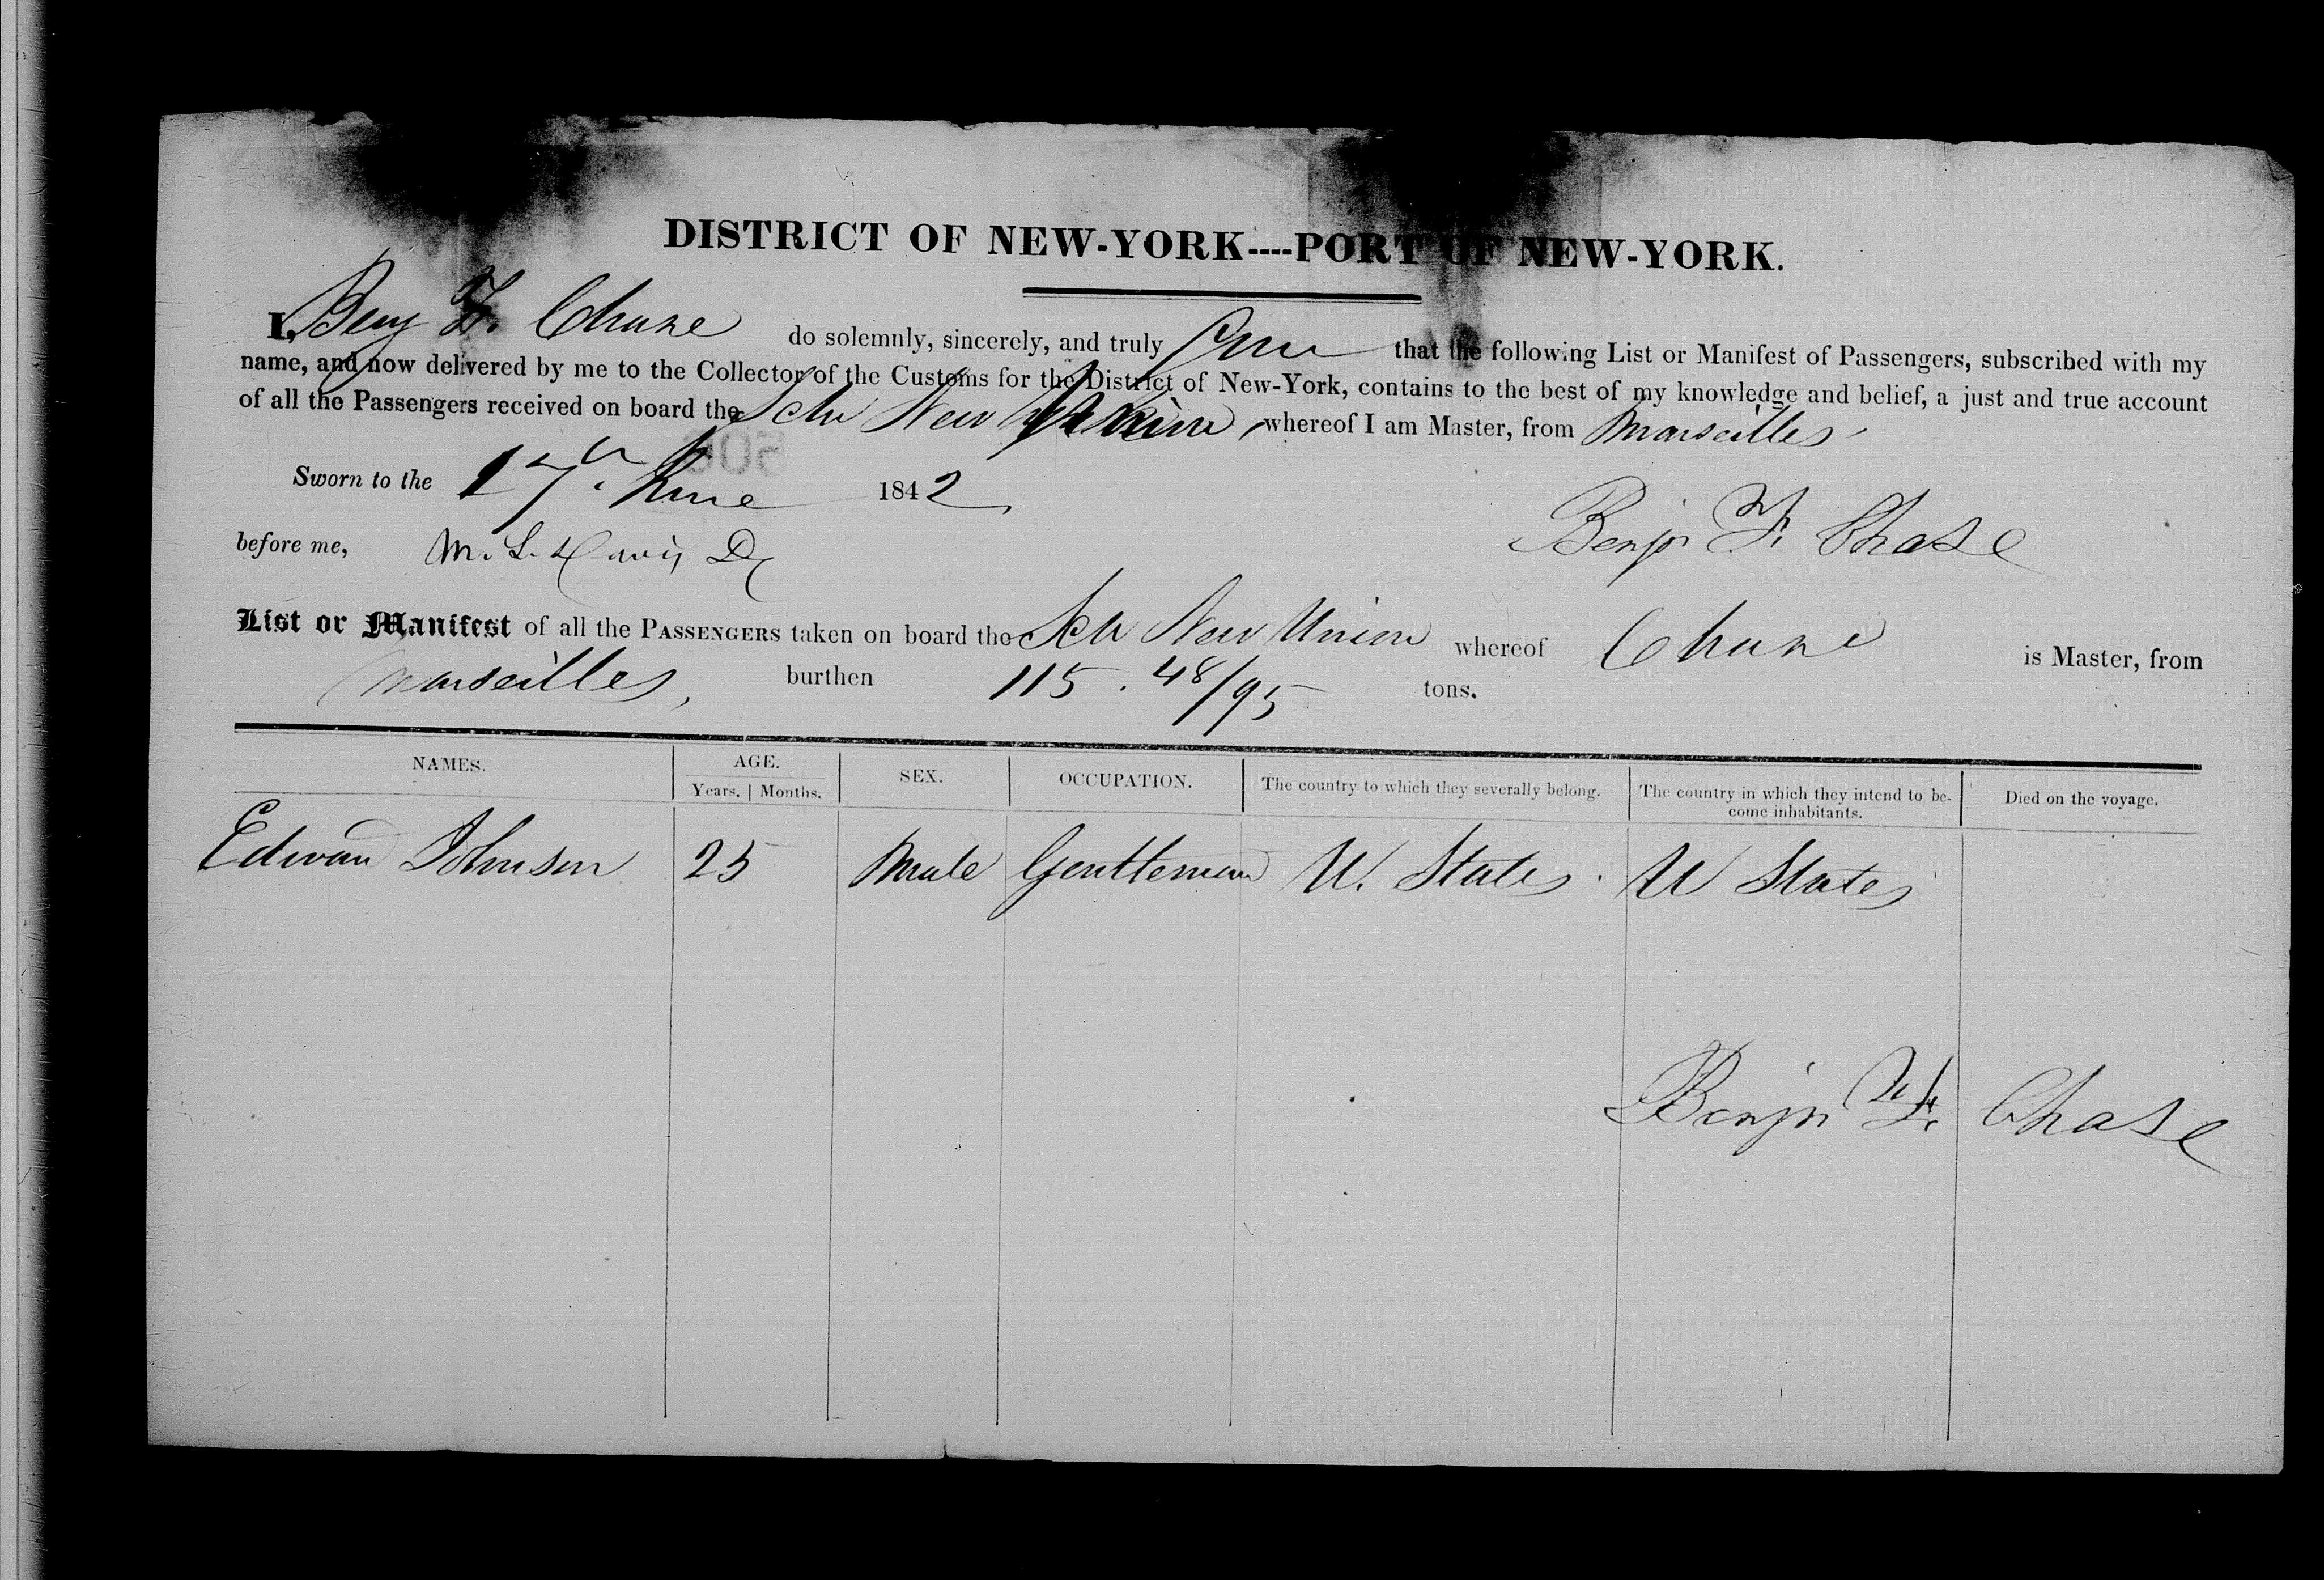 DISTRICT OF NEW-YORK----PORT OF NEW-YORK.
I, Benj F. Chase do solemnly, sincerely, and truly that the following List or Manifest of Passengers, subscribed with my
name, and now delivered by me to the Collector of the Customs for the District of New-York, contains to the best of my knowledge and belief, a just and true account
of all the Passengers received on board the Schr New Union whereof I am Master, from Marseilles
Sworn to the 17th June 1842
before me, M. L. Davis
Benjn F. Chase
List or Manifest of all the PASSENGERS taken on board the Schr New Union whereof Chase is Master, from
Marseilles, burthen 115. 48/95 tons.
NAMES. AGE. SEX. OCCUPATION. The country to which they severally belong. The country in which they intend to be- Died on the voyage.
Years. | Months. come inhabitants.
Edwar Johnson 25 Male Gentleman U. States. U States
Benjn F. Chase